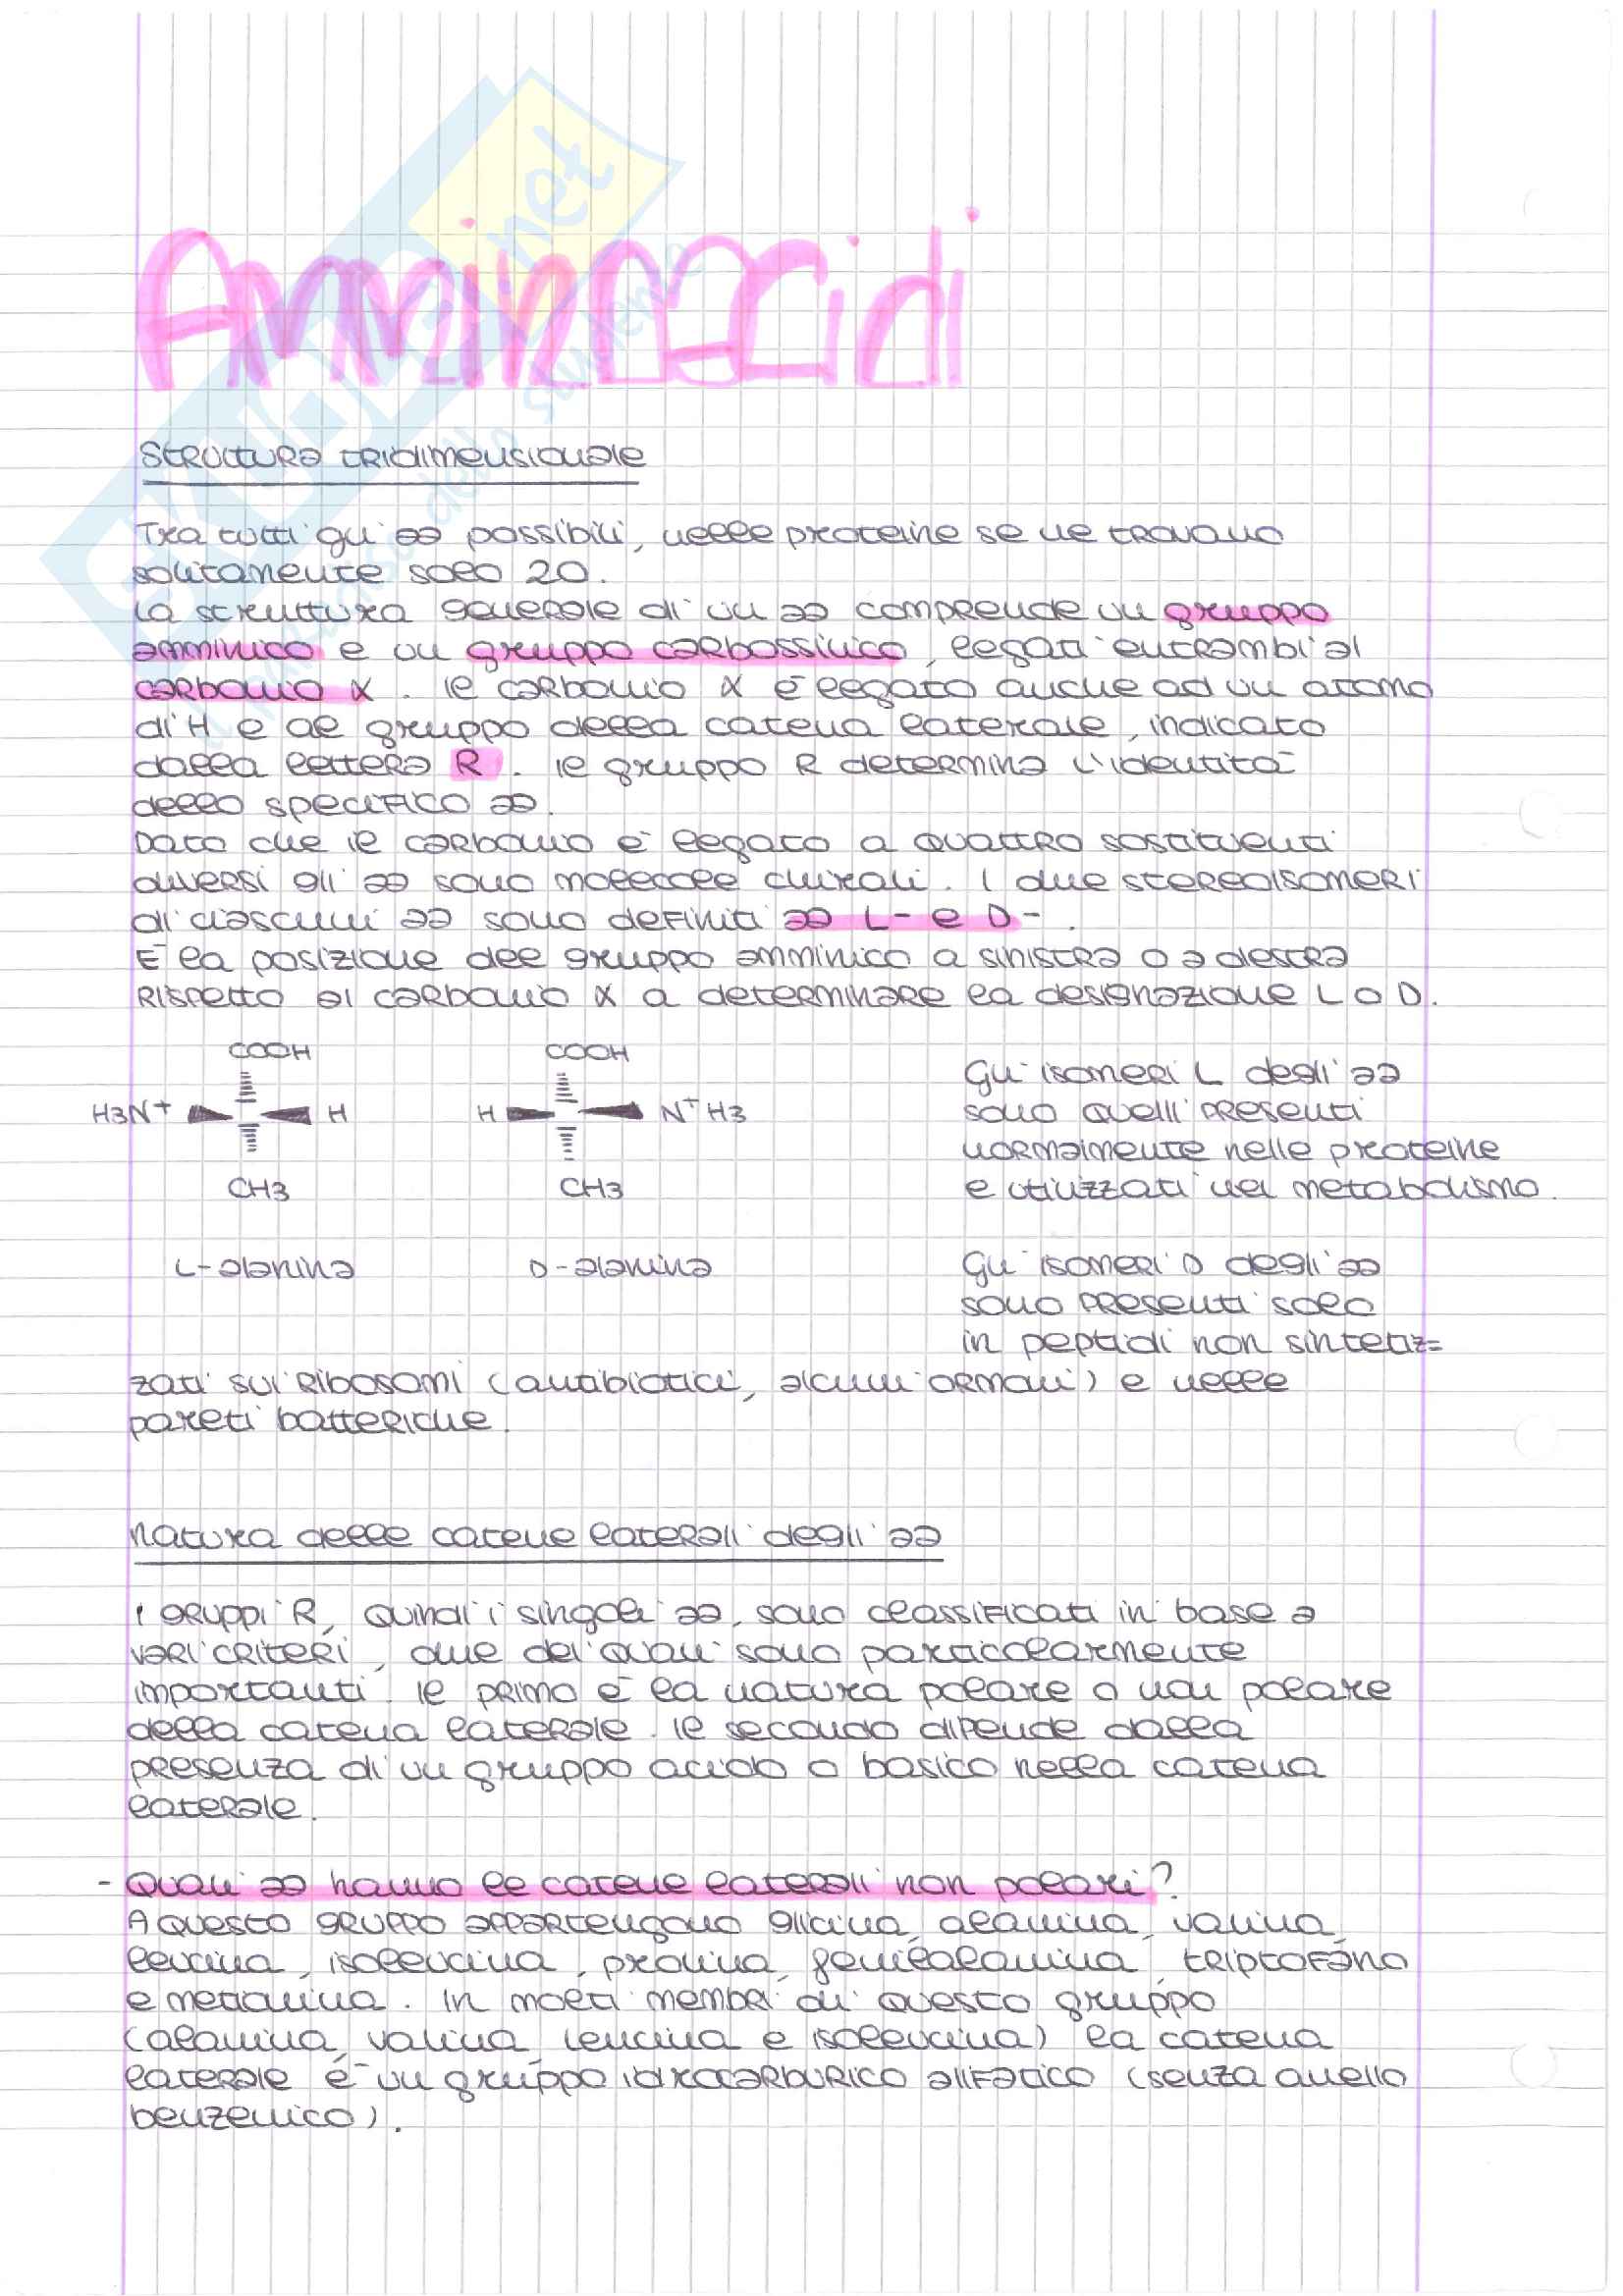 Amminoacidi
Struttura tridimensionale
Tra tutti gli aa possibili, nelle proteine se ne trovano
solitamente solo 20.
La struttura generale di un aa comprende un gruppo
amminico e un gruppo carbossilico, legati entrambi al
carbonio α. Il carbonio α è legato anche ad un atomo
di H e al gruppo della catena laterale, indicato
dalla lettera R. Il gruppo R determina l'identità
dello specifico aa.
Dato che il carbonio è legato a quattro sostituenti
diversi gli aa sono molecole chirali. I due stereoisomeri
di ciascun aa sono definiti aa L- e D-.
È la posizione del gruppo amminico a sinistra o a destra
rispetto al carbonio α a determinare la designazione L o D.
COOH COOH
H3N+ H H N+H3
CH3 CH3
L-alanina D-alanina
Gli isomeri L degli aa
sono quelli presenti
normalmente nelle proteine
e utilizzati nel metabolismo.
Gli isomeri D degli aa
sono presenti solo
in peptidi non sintetiz=
zati sui ribosomi (antibiotici, alcuni ormoni) e nelle
pareti batteriche.
Natura delle catene laterali degli aa
I gruppi R, quindi i singoli aa, sono classificati in base a
vari criteri, due dei quali sono particolarmente
importanti. Il primo è la natura polare o non polare
della catena laterale. Il secondo dipende dalla
presenza di un gruppo acido o basico nella catena
laterale.
- Quali aa hanno le catene laterali non polari?
A questo gruppo appartengono glicina, alanina, valina,
leucina, isoleucina, prolina, fenilalanina, triptofano
e metionina. In molti membri di questo gruppo
(alanina, valina, leucina e isoleucina) la catena
laterale è un gruppo idrocarburico alifatico (senza anello
benzenico).